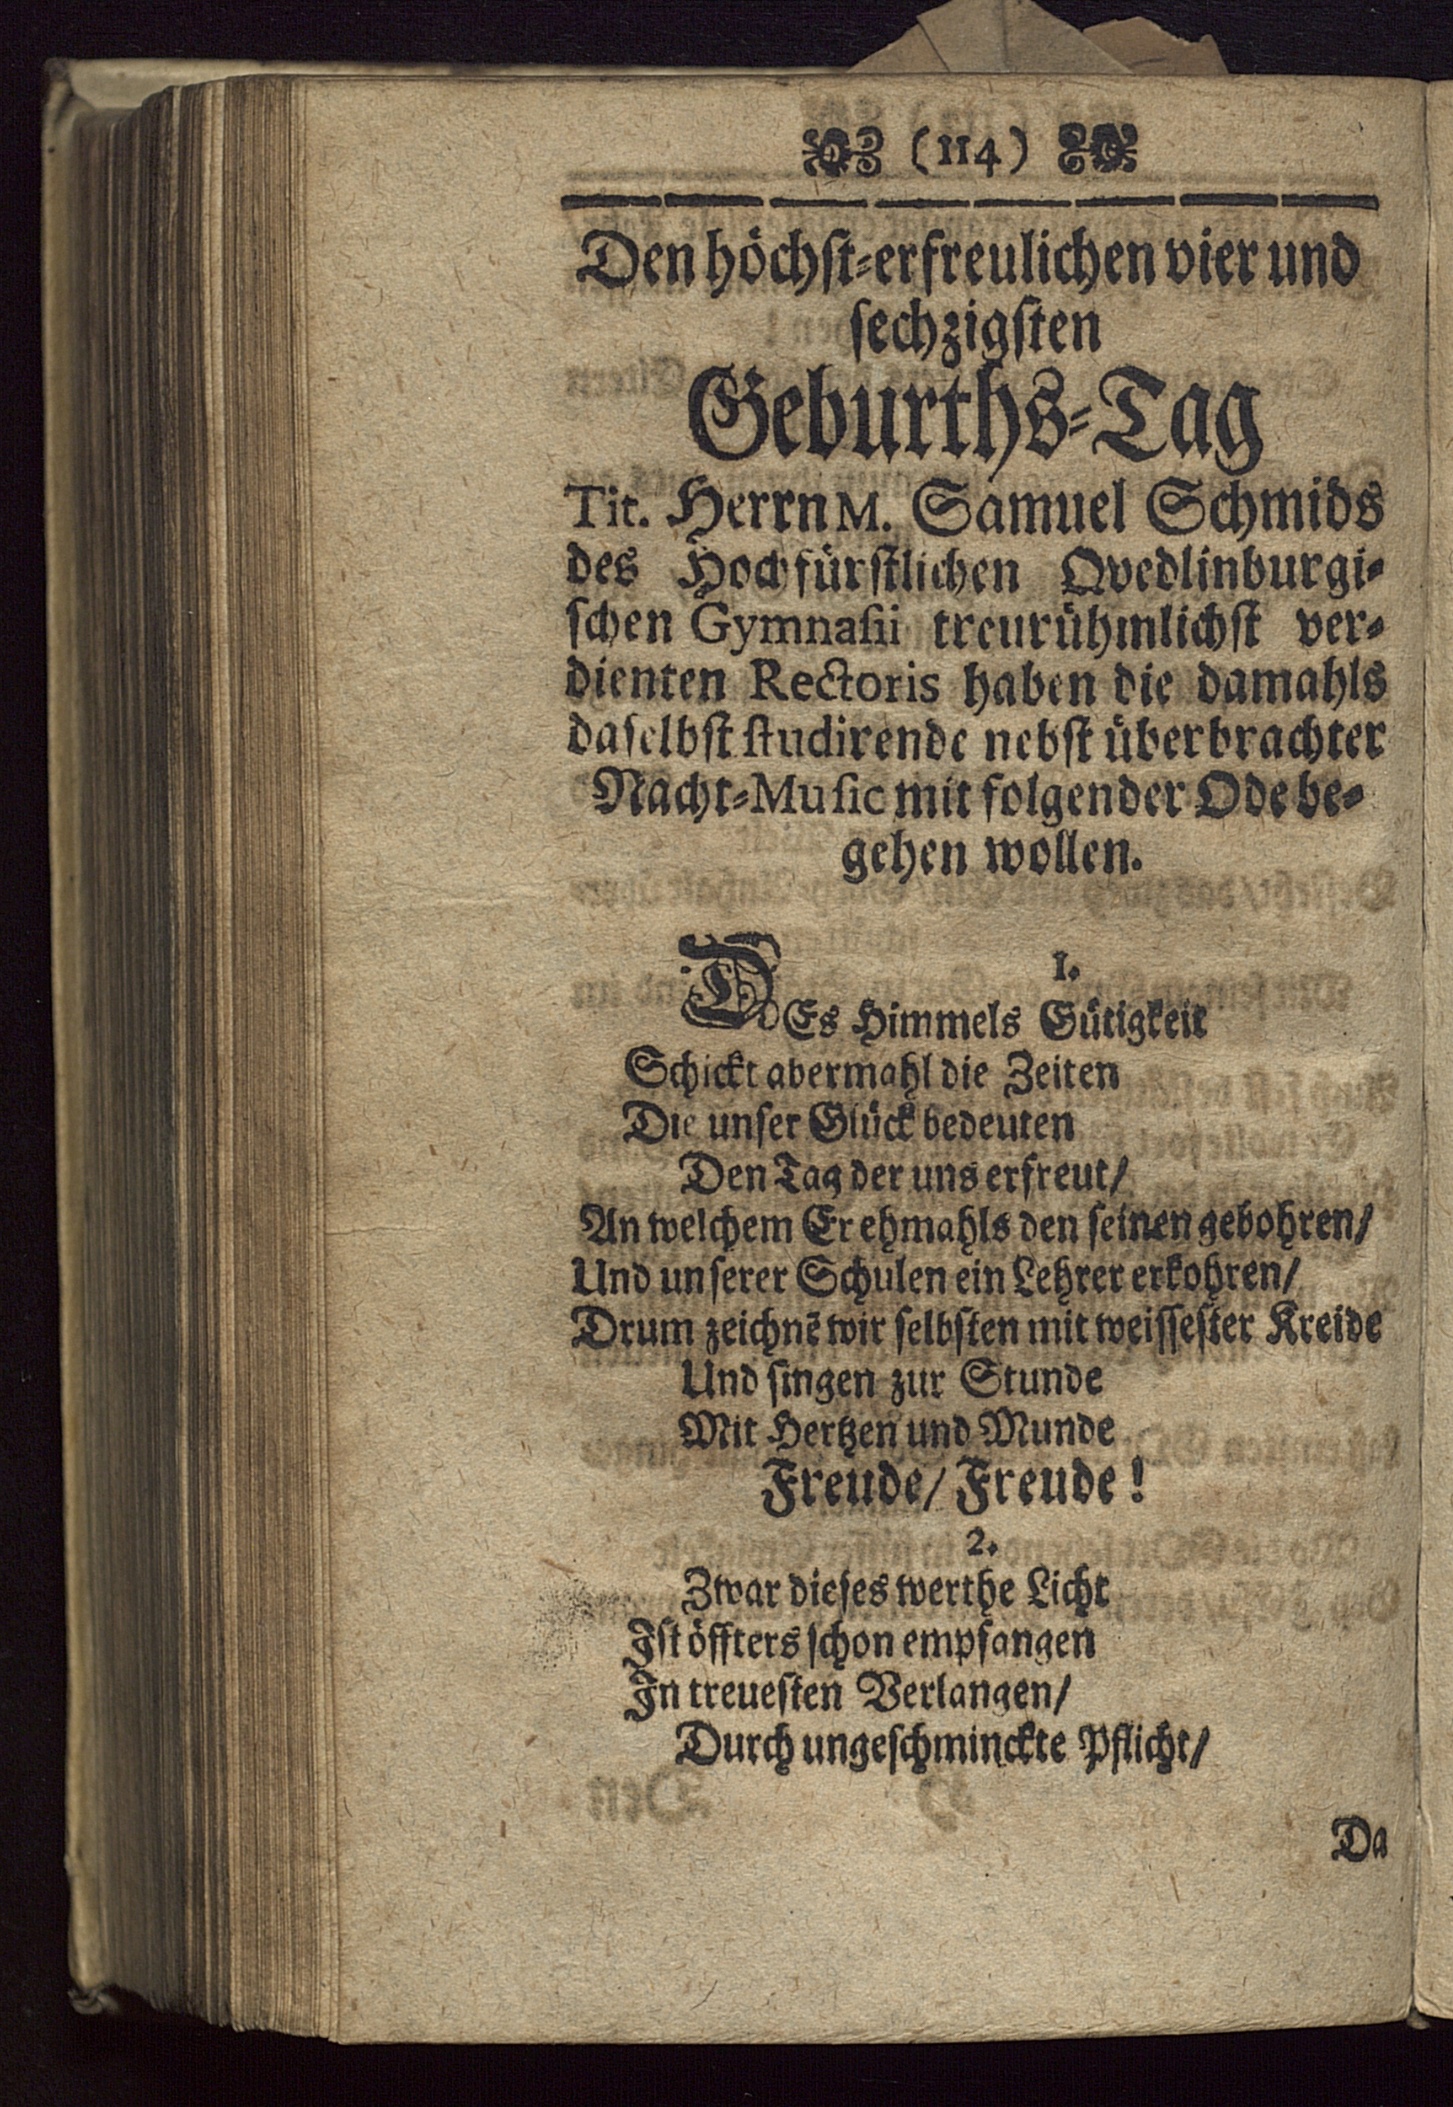 (114)
Den höchst-erfreulichen vier und
sechzigsten
Geburths-Tag
Tit. Herrn M. Samuel Schmids
des Hochfürstlichen Qvedlinburgi-
schen Gymnasii treurühmlichst ver-
dienten Rectoris haben die damahls
daselbst studirende nebst überbrachter
Nacht-Music mit folgender Ode be-
gehen wollen.
1.
DEs Himmels Gütigkeit
Schickt abermahl die Zeiten
Die unser Glück bedeuten
Den Tag der uns erfreut/
An welchem Er ehmahls den seinen gebohren/
Und unserer Schulen ein Lehrer erkohren/
Drum zeichnē wir selbsten mit weissester Kreide
Und singen zur Stunde
Mit Hertzen und Munde
Freude/ Freude!
2.
Zwar dieses werthe Licht
Ist öffters schon empfangen
In treuesten Verlangen/
Durch ungeschminckte Pflicht/
Da